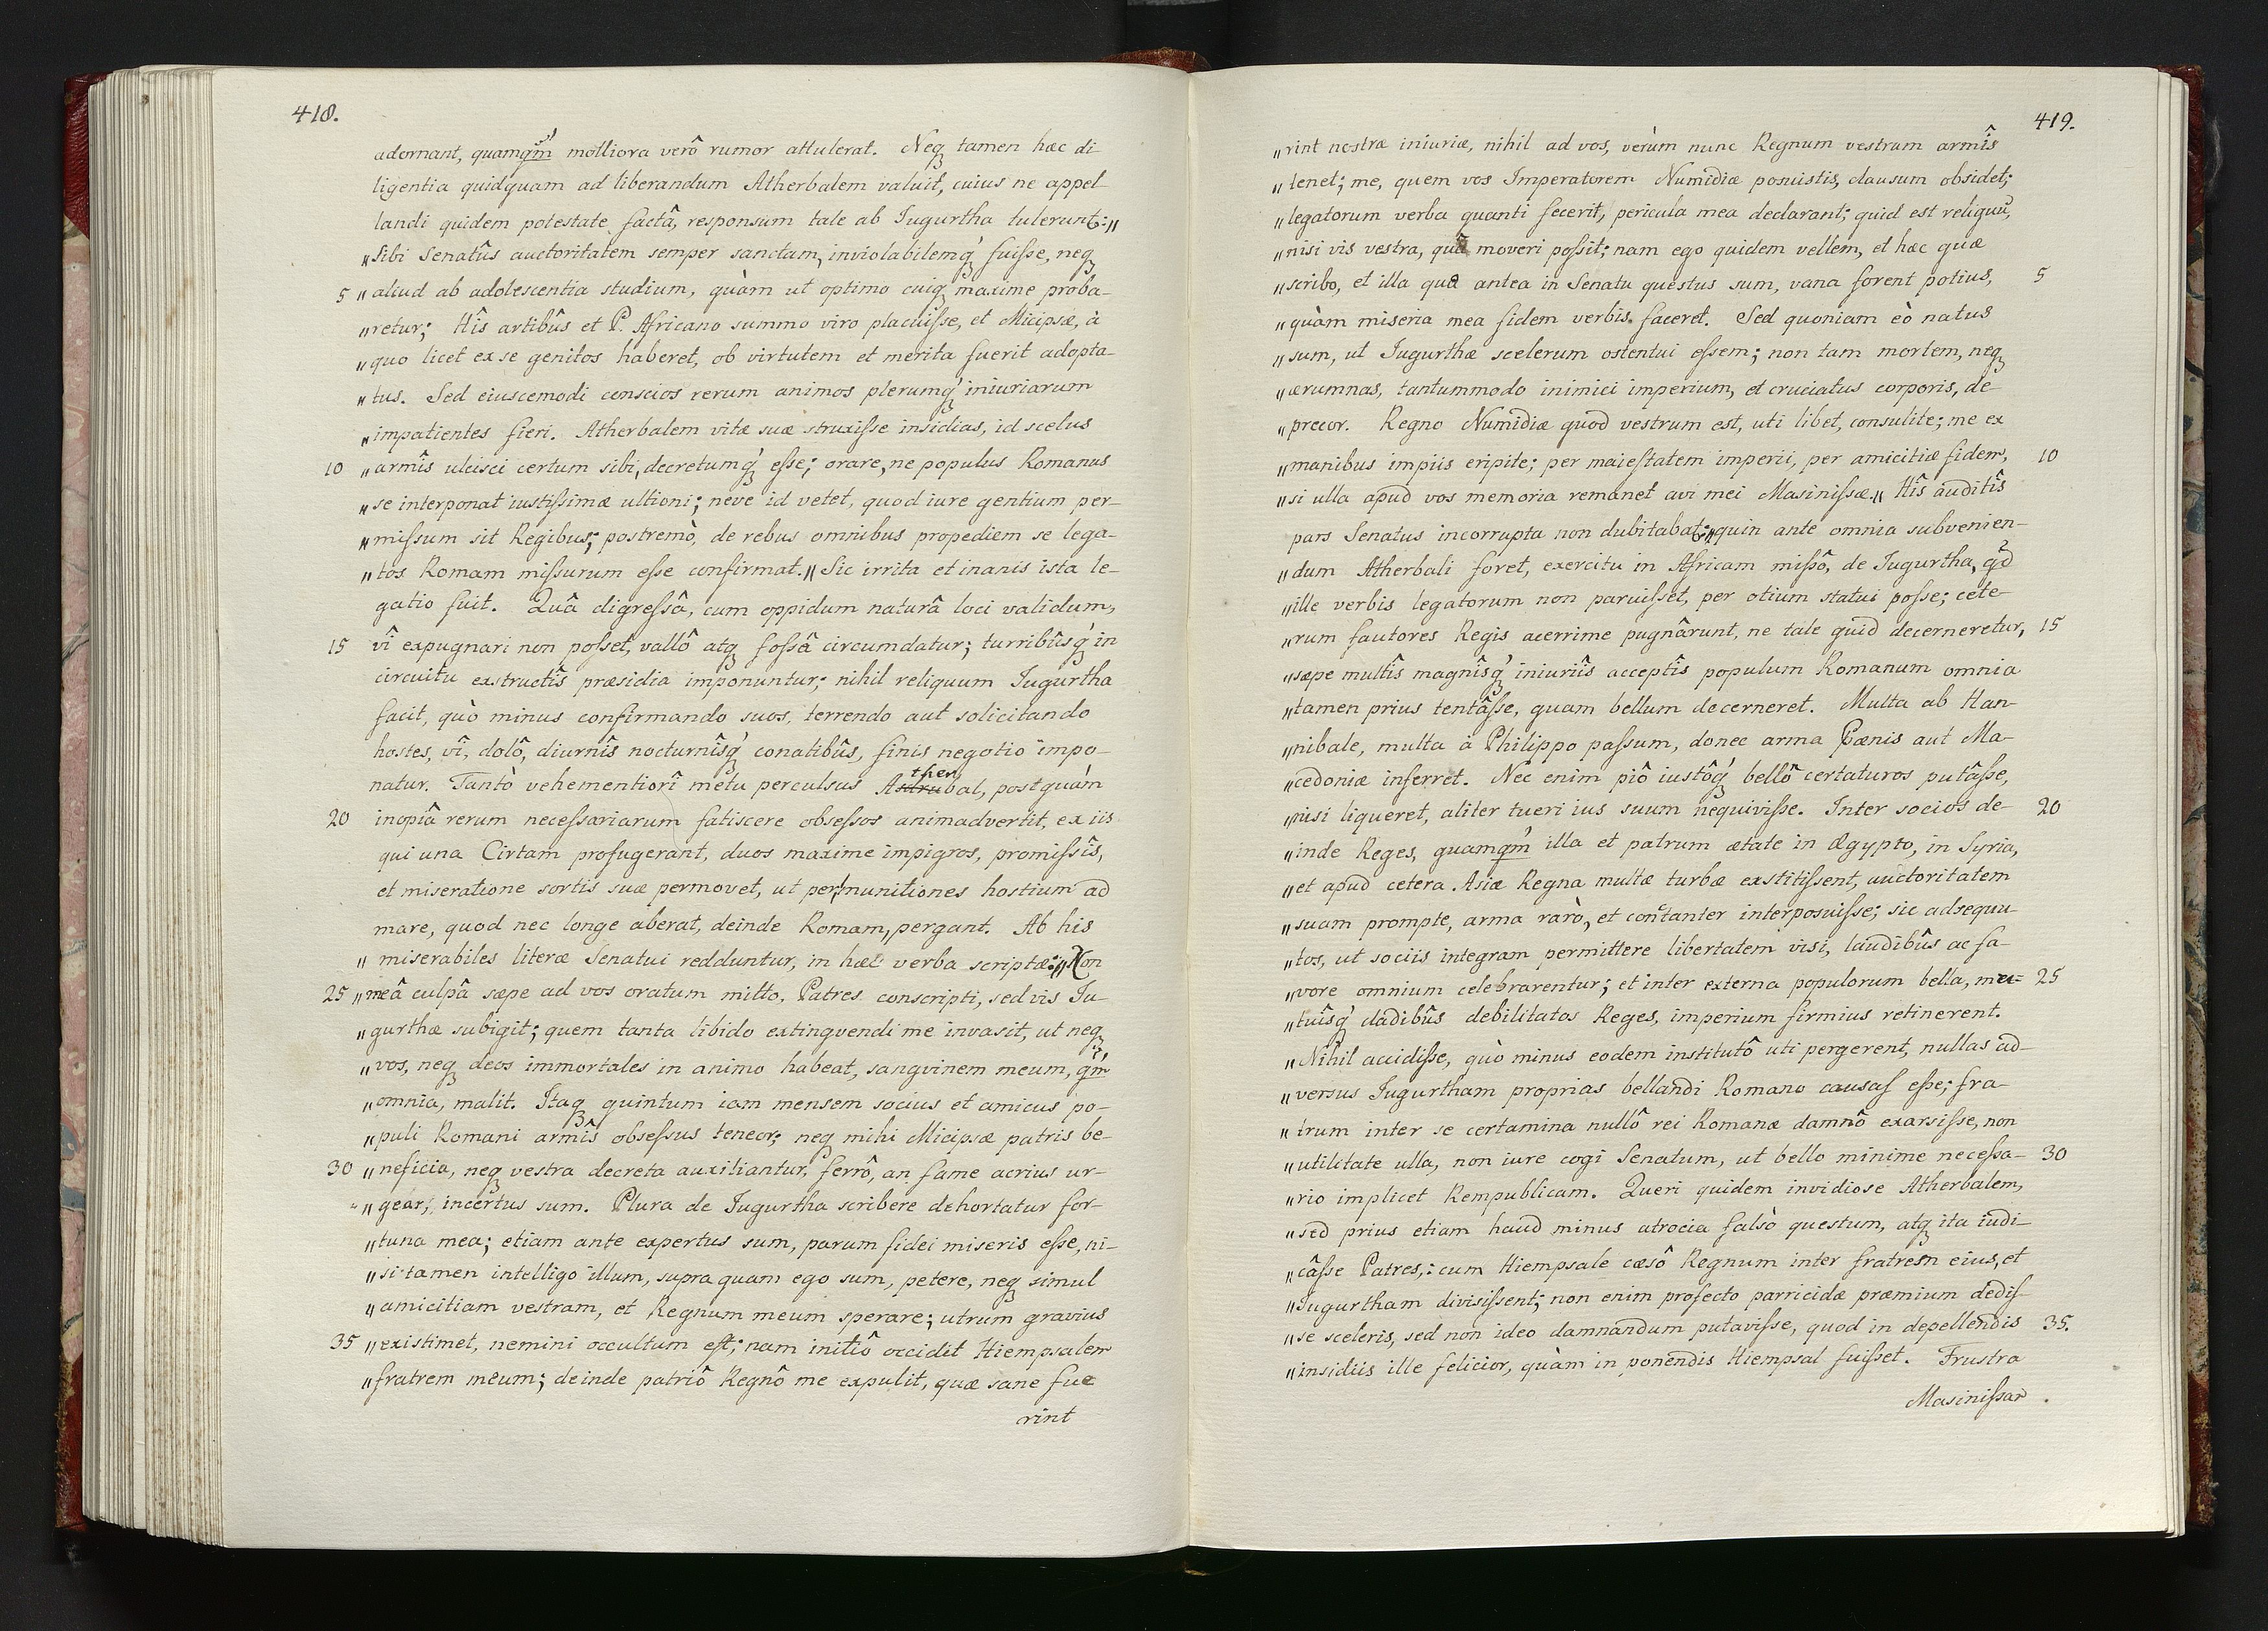 418.
adornant, quamqm̃ molliora verô rumor attulerat. Neq₃ tamen hæc di
ligentia quidquam ad liberandum Atherbalem valuit, cuius ne appel
landi quidem potestate factâ, responsum tale ab Iugurtha tulerunt:〃
〃Sibi Senatûs auctoritatem semper sanctam, inviolabilemq́₃ fuiſse, neq₃
5 〃aliud ab adolescentia studium, quàm ut optimo cuiq₃ maxime proba-
〃retur; Hîs artibûs et P. Africano summo viro placuiſse, et Micipsæ, à
〃quo licet ex se genitos haberet, ob virtutem et merita fuerit adopta-
〃tus. Sed eiuscemodi conscios rerum animos plerumq́₃ iniuriarum
〃impatientes fieri. Atherbalem vitæ suæ struxiſse insidias, id scelus
10 〃armîs ulcisci certum sibi, decretumq́₃ eſse; orare, ne populus Romanus
〃se interponat iustiſsimæ ultioni; neve id vetet, quod iure gentium per-
〃miſsum sit Regibus; postremò, de rebus omnibus propediem se lega-
〃tos Romam miſsurum eſse confirmat.〃 Sic irrita et inanis ista le-
gatio fuit. Quâ digreſsâ, cum oppidum naturâ loci validum,
15 vî expugnari non poſset, vallô atq₃ foſsâ circumdatur; turribûsq́₃ in
circuitu exstructîs præsidia imponuntur; nihil reliquum Iugurtha
facit, quò minus confirmando suos, terrendo aut solicitando
hostes, vî, dolô, diurnîs nocturnîsq́₃ conatibûs, finis negotio impo-
natur. Tantò vehementiorî metu perculsus Asdrubal, postquàm
ther
20 inopiâ rerum neceſsariarum fatiscere obseſsos animadvertit, ex iis
qui una Cirtam profugerant, duos maxime impigros, promiſsîs,
et miseratione sortis suæ permovet, ut per munitiones hostium ad
mare, quod nec longe aberat, deinde Romam, pergant. Ab his
〃miserabiles literæ Senatui redduntur, in hæc verba scriptæ:〃Non
25 〃meâ culpâ sæpe ad vos oratum mitto, Patres conscripti, sed vis Iu-
〃gurthæ subigit; quem tanta libido extingvendi me invasit, ut neq₃
〃vos, neq₃ deos immortales in animo habeat, sangvinem meum, qm̃
〃omnia, malit. Itaq₃ quintum iam mensem socius et amicus po-
〃puli Romani armîs obseſsus teneor; neq₃ mihi Micipsæ patris be-
30 〃neficia, neq₃ vestra decreta auxiliantur, ferrô, an fame acrius ur-
〃gear, incertus sum. Plura de Iugurtha scribere dehortatur for-
〃tuna mea; etiam ante expertus sum, parum fidei miseris eſse, ni-
〃si tamen intelligo illum, supra quam ego sum, petere, neq₃ simul
〃amicitiam vestram, et Regnum meum sperare; utrum gravius
35 〃existimet, nemini occultum eſt; nam initiô occidit Hiempsalem
〃fratrem meum; deinde patriô Regnô me expulit, quæ sane fue
rint
419.
〃rint nostræ iniuriæ, nihil ad vos, verùm nunc Regnum vestrum armîs
〃tenet; me, quem vos Imperatorem Numidiæ posuistis, clausum obsidet;
〃legatorum verba quanti fecerit, pericula mea declarant; quid est reliquũ,
〃nisi vis vestra, quâ moveri poſsit; nam ego quidem vellem, et hæc quæ
〃scribo, et illa quæ antea in Senatu questus sum, vana forent potius, 5
〃quàm miseria mea fidem verbis faceret. Sed quoniam eò natus
〃sum, ut Iugurthæ scelerum ostentui eſsem; non tam mortem, neq₃
〃ærumnas, tantummodo inimici imperium, et cruciatus corporis, de-
〃precor. Regno Numidiæ quod vestrum est, uti libet, consulite; me ex
〃manibus impiis eripite; per maieſtatem imperii, per amicitiæ fidem, 10
〃si ulla apud vos memoria remanet avi mei Masiniſsæ.〃 Hîs auditîs
pars Senatus incorrupta non dubitabat:〃quin ante omnia subvenien-
〃dum Atherbali foret, exercitu in Africam miſsô, de Iugurtha, qd̃
〃ille verbis legatorum non paruiſset, per otium statui poſse; cete-
〃rum fautores Regis acerrime pugnârunt, ne tale quid decerneretur, 15
〃sæpe multîs magnîsq́₃ iniuriîs acceptîs populum Romanum omnia
〃tamen prius tentâſse, quam bellum decerneret. Multa ab Han-
〃nibale, multa à Philippo paſsum, donec arma Pœnis aut Ma-
〃cedoniæ inferret. Nec enim piô iustôq́₃ bellô certaturos putâſse,
〃nisi liqueret, aliter tueri ius suum nequiviſse. Inter socios de- 20
〃inde Reges, quamqm̃ illa et patrum ætate in Ægypto, in Syria,
〃et apud cetera Asiæ Regna multæ turbæ exstitiſsent, auctoritatem
〃suam prompte, arma rarò, et conctanter interposuiſse; sic adsequu-
〃tos, ut sociis integram permittere libertatem visi, laudibûs ac fa-
〃vore omnium celebrarentur; et inter externa populorum bella, mu- 25
〃tuîsq́₃ cladibûs debilitatos Reges, imperium firmius retinerent.
〃Nihil accidiſse, quò minus eodem institutô uti pergerent, nullas ad-
〃versus Iugurtham proprias bellandi Romano causaſ eſse; fra-
〃trum inter se certamina nullô rei Romanæ damnô exarsiſse, non
〃utilitate ulla, non iure cogi Senatum, ut bello minime neceſsa- 30
〃rio implicet Rempublicam. Queri quidem invidiose Atherbalem,
〃sed prius etiam haud minus atrocia falsò questum, atq₃ ita iudi-
〃câſse Patres,: cum Hiempsale cæsô Regnum inter fratrem eius, et
〃Iugurtham divisiſsent; non enim profecto parricidæ præmium dediſ-
〃se sceleris, sed non ideo damnandum putaviſse, quod in depellendis 35.
〃insidiis ille felicior, quàm in ponendis Hiempsal fuiſset. Frustra
Masiniſsam